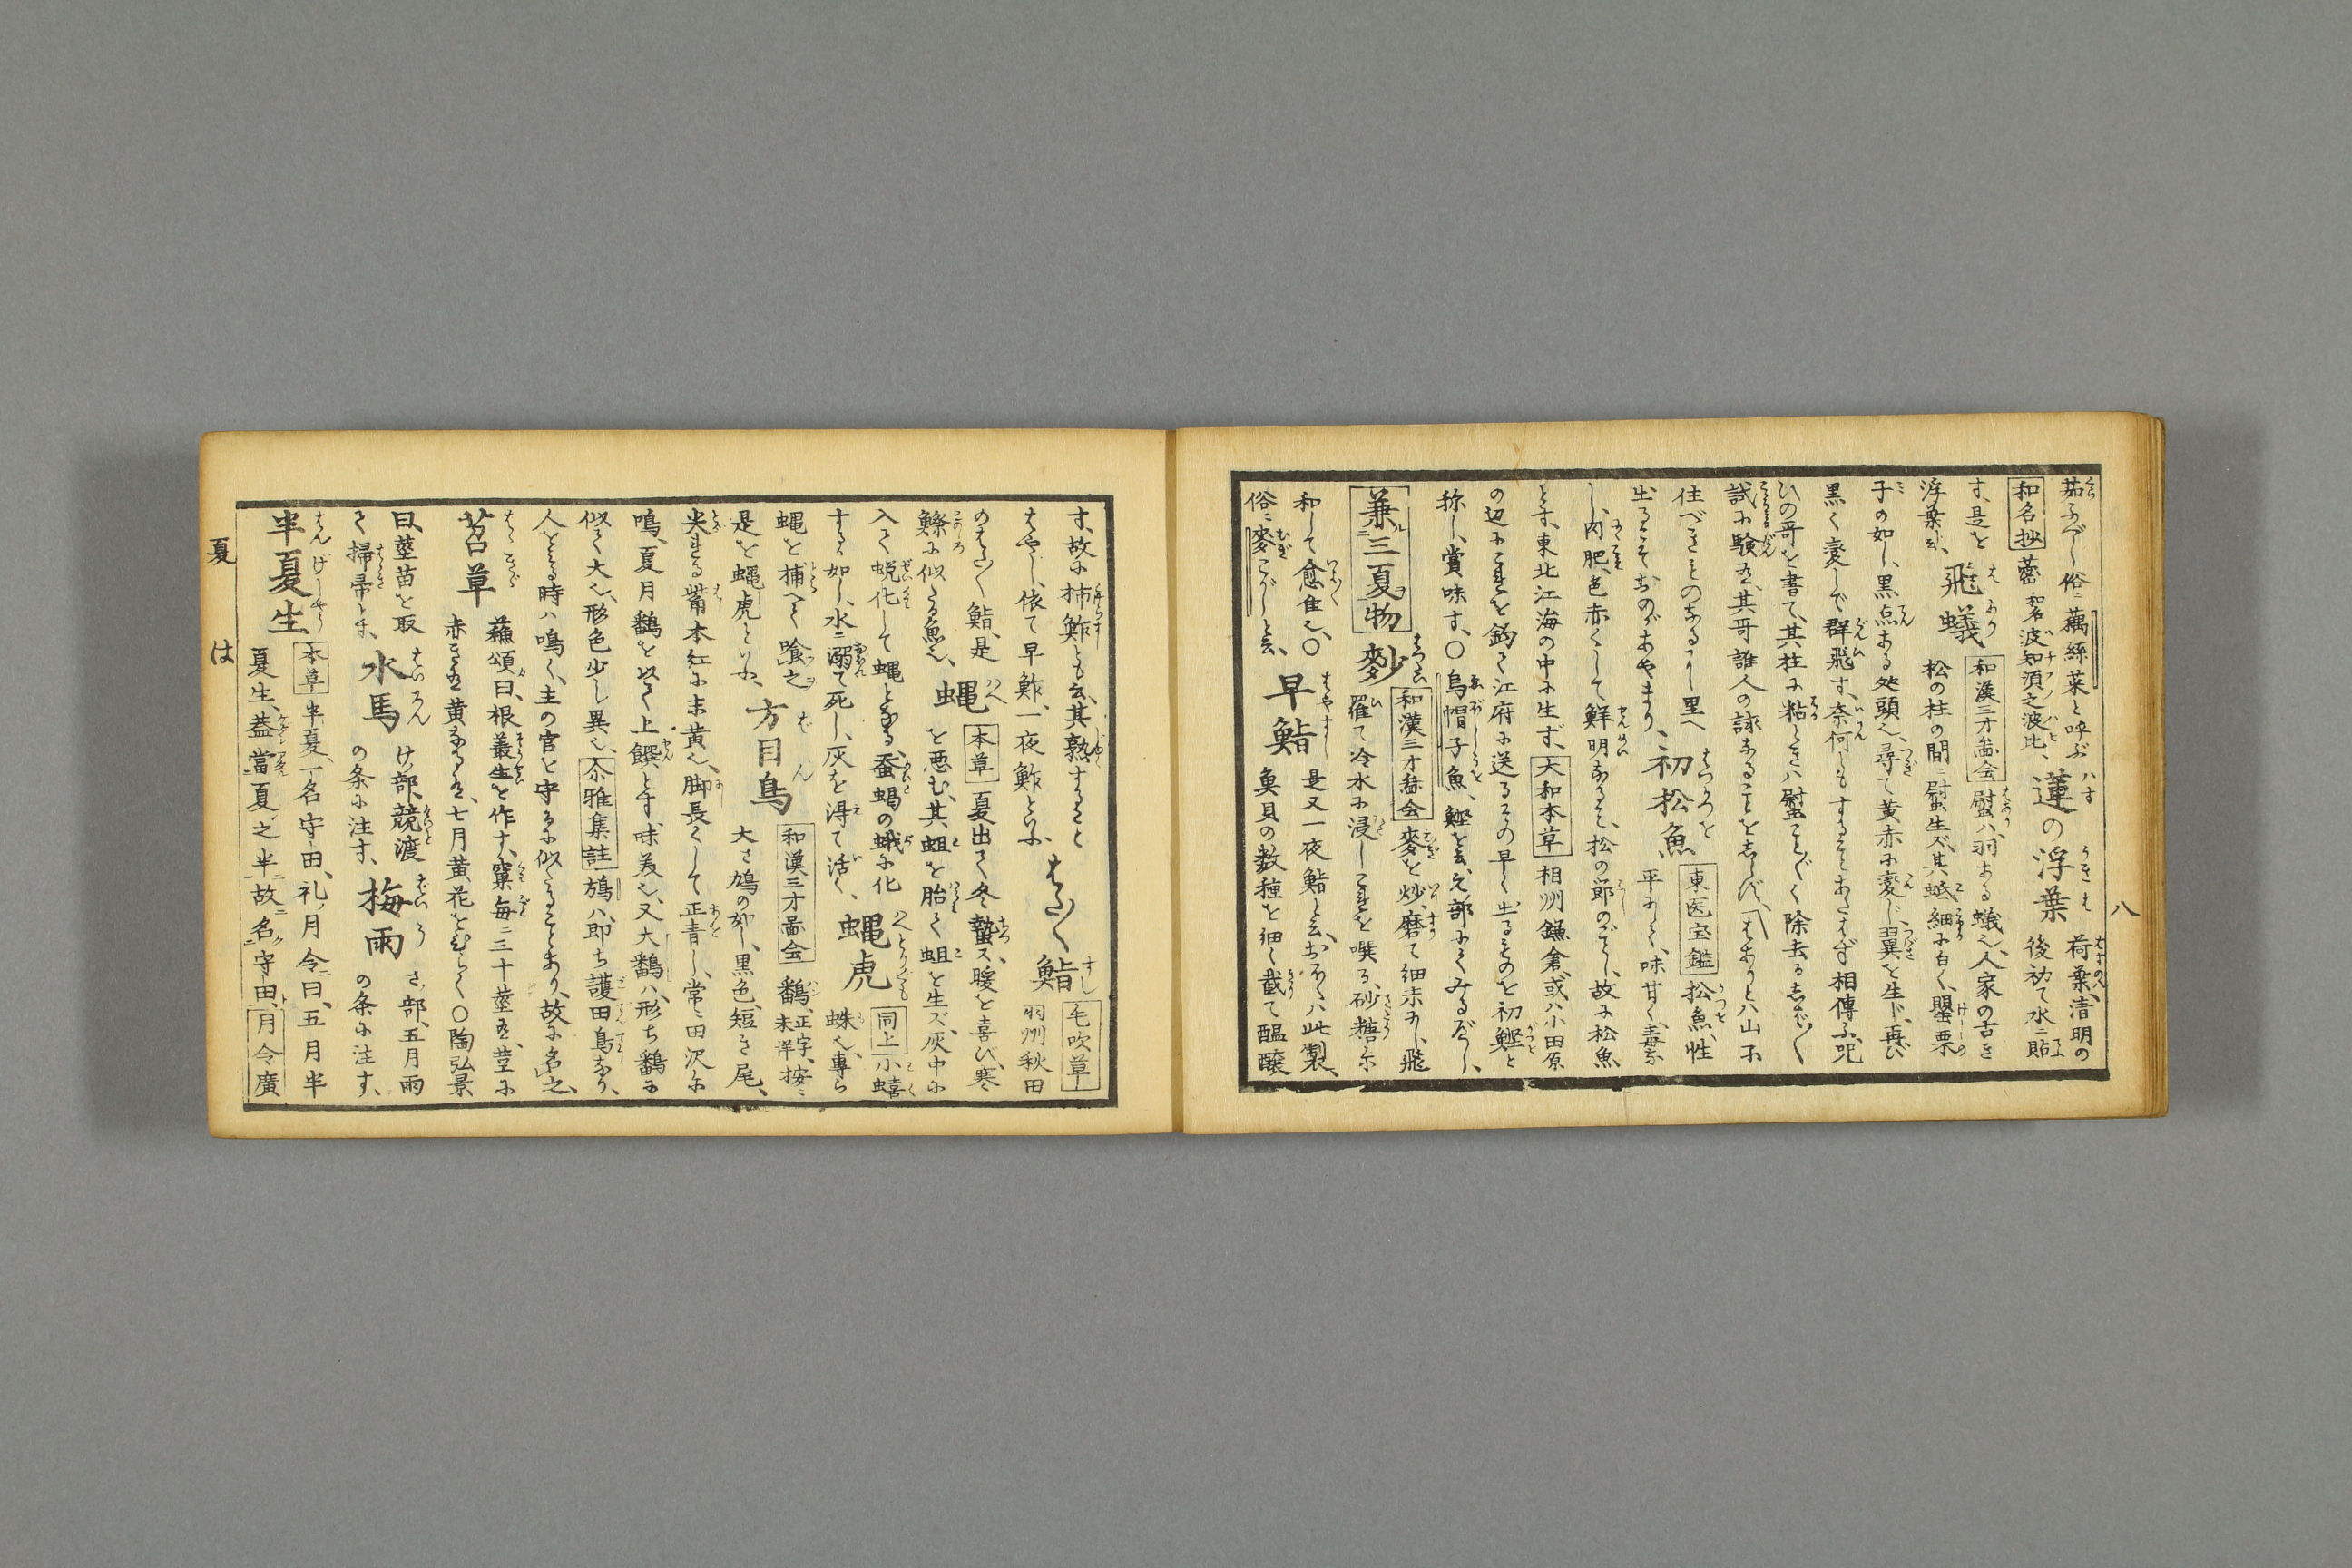 茹ふべし俗ニ藕絲菜と呼ぶ 蓮の浮葉 荷葉清明の後初て水ニ貼
和名抄 波知須之波比
す、是を浮葉 飛蟻 和漢三才圖会 螱ハ羽ある蟻也、人家の古き松の柱の間ニ螱生ズ、其蚳細に白く、罌粟
子の如し、黒点ある処頭也、尋て黄赤に変じ翼を生ジ、再び
黒く変じて群飛す、奈何ともすることあたはず相傳ふ呪
ひの哥を書て、其柱に粘ときハ螱ことごとく除去る
試に験有、其哥誰人の詠あることをしらず、はありとハ山に
住べきものなるに里へ出るこそおのがあやまり、 初松魚 東医宝鑑 松魚、性平にして、味甘く毒な
し、肉肥、色赤くして鮮明なること、松の節のごとし、故に松魚
とす、東北江海の中に生ず、大和本草 相州鎌倉、或ハ小田原
の辺にこれを釣て江府に送るその早く出るものを初鰹と
称し、賞味す、〇烏帽子魚、鰹を云、え部にてみるべし、
兼三夏物 麨 和漢三才圖会 麥を炒、磨て細末にし、飛羅て冷水に浸しこれを喫る、砂糖に
和して愈佳也、〇俗ニ麥こがしと云、 早鮨 是又一夜鮨と云おほくハ此製、魚貝の数種を細く截て醞醸
す、故に柿鮓とも云、其熟すること
はやし、依て早鮓、一夜鮓といふ はたはた鮨 毛吹草 羽州秋田
のはたはた鮨、是鰶に似たる魚也、 蝿 本草 夏出て冬蟄ス、暖を喜び、寒を悪む、其蛆を胎て蛆を生ズ、灰中に
入て蛻化して蝿となる、蚕蝎の蛾に化するが如し、水ニ溺て死し、灰を得て活く、 蝿虎 同上 小蟢蛛也、専ら
蝿を捕へて喰之是を蝿虎といふ、 方目鳥 和漢三才圖会 鷭、正字未詳、按ニ大さ鳩の如し、黒色、短き尾、
尖れる觜本紅に末黄也、脚長くして正青し、常ニ田沢に
鳴、夏月鷭を以て上饌とす、味美也、又大鷭ハ、形ち鷭に
似て大也、形色少し異也、尒雅集註 鳩ハ、即ち護田鳥なり、
人をみる時ハ鳴く、主の官を守るに似たることあり、故に名之、
苕草 蘓頌曰、根叢生を作す、窠毎ニ三十莖有、莖に赤き有黄なる有、七月黄花をひらく〇陶弘景
曰、莖苗を取て掃帚とす、 水馬 け部、競渡の条に注す、 梅雨 さ部、五月雨の条に注す、
半夏生 本草 半夏、一名守田、礼月令ニ曰、五月半夏生、蓋當夏之半故名守田、月令廣
夏 は
八